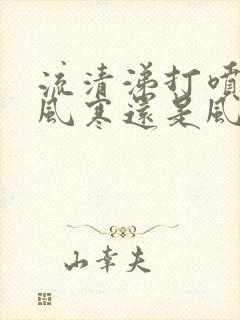 流清涕打噴
風寒還是風
山幸夫